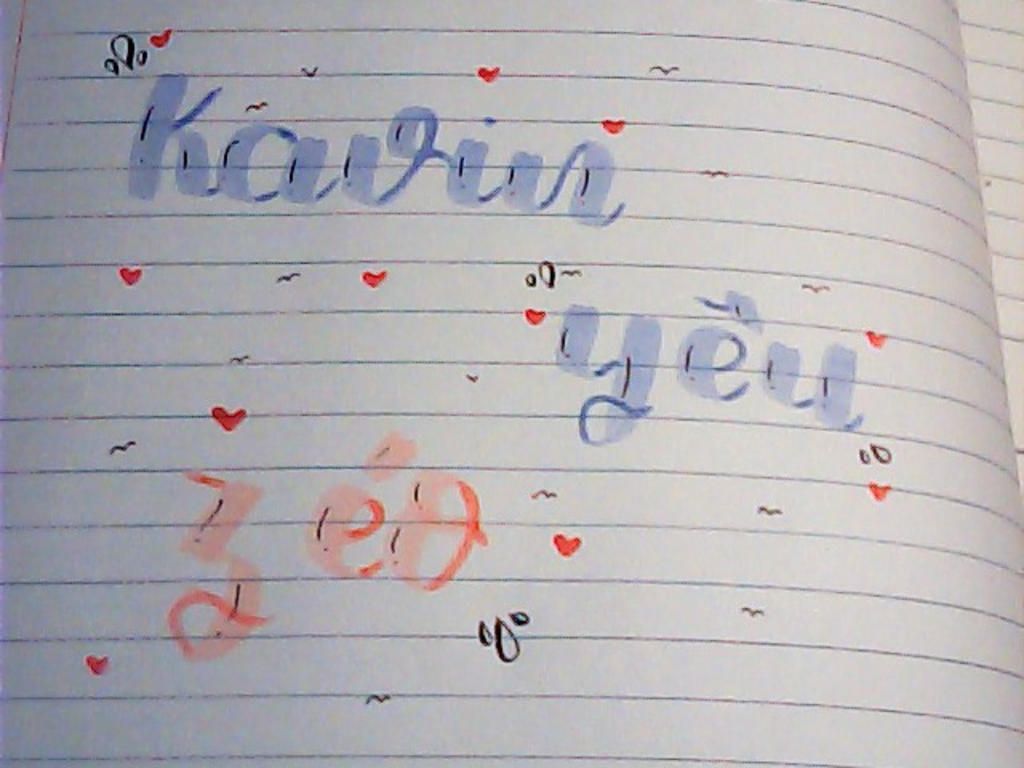 Kavin
yêu
zéo